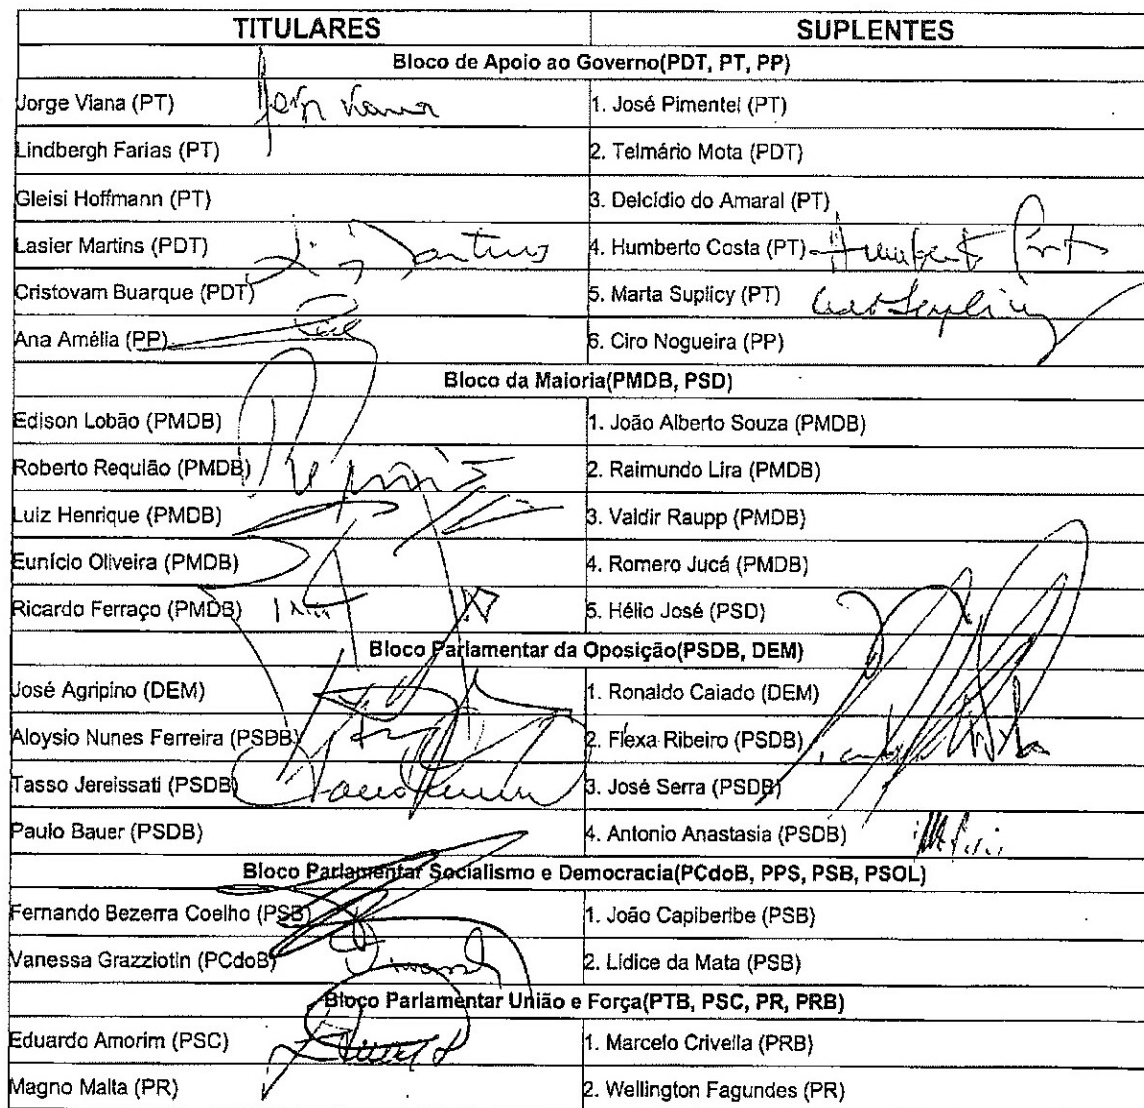 TITULARES SUPLENTES
Bloco de Apoio ao Governo(PDT, PT, PP)
Jorge Viana (PT) 1. José Pimentel (PT)
Lindbergh Farias (PT) 2. Telmário Mota (PDT)
Gleisi Hoffmann (PT) 3. Delcídio do Amaral (PT)
Lasier Martins (PDT) 4. Humberto Costa (PT)
Cristovam Buarque (PDT) 5. Marta Suplicy (PT)
Ana Amélia (PP) 6. Ciro Nogueira (PP)
Bloco da Maioria(PMDB, PSD)
Edison Lobão (PMDB) 1. João Alberto Souza (PMDB)
Roberto Requião (PMDB) 2. Raimundo Lira (PMDB)
Luiz Henrique (PMDB) 3. Valdir Raupp (PMDB)
Eunício Oliveira (PMDB) 4. Romero Jucá (PMDB)
Ricardo Ferraço (PMDB) 5. Hélio José (PSD)
Bloco Parlamentar da Oposição(PSDB, DEM)
José Agripino (DEM) 1. Ronaldo Caiado (DEM)
Aloysio Nunes Ferreira (PSDB) 2. Flexa Ribeiro (PSDB)
Tasso Jereissati (PSDB) 3. José Serra (PSDB)
Paulo Bauer (PSDB) 4. Antonio Anastasia (PSDB)
Bloco Parlamentar Socialismo e Democracia(PCdoB, PPS, PSB, PSOL)
Fernando Bezerra Coelho (PSB) 1. João Capiberibe (PSB)
Vanessa Grazziotin (PCdoB) 2. Lídice da Mata (PSB)
Bloco Parlamentar União e Força(PTB, PSC, PR, PRB)
Eduardo Amorim (PSC) 1. Marcelo Crivella (PRB)
Magno Malta (PR) 2. Wellington Fagundes (PR)